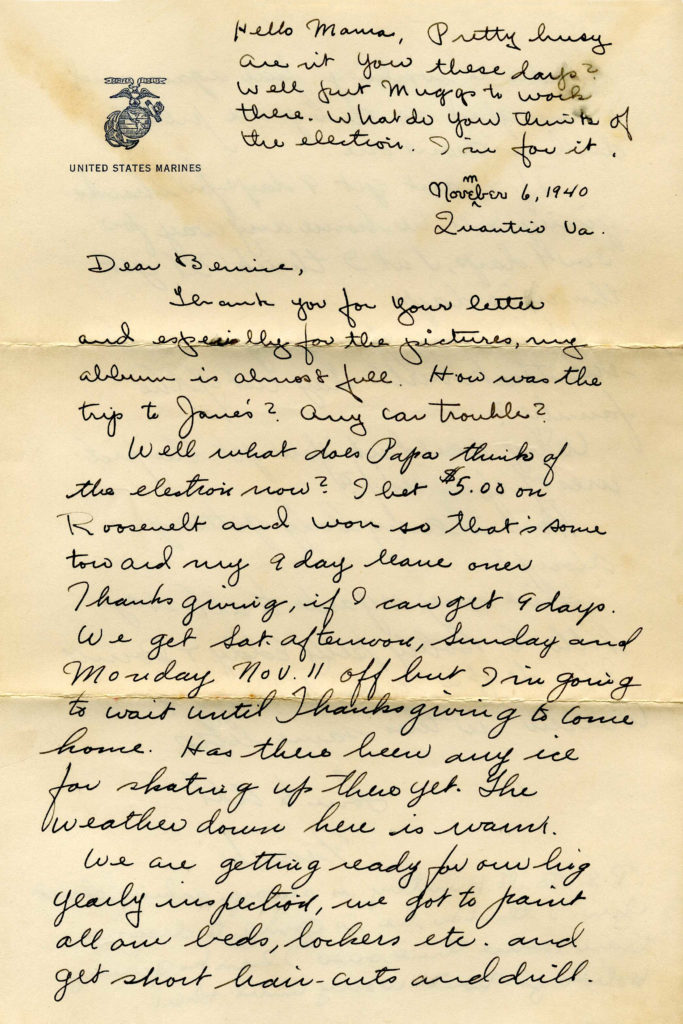 Hello Mama, Pretty busy
are n't you these days?
Well put Muggs to work
there. What do you think of
the election. I'm for it.
UNITED STATES MARINES
November 6, 1940
Quantico Va.
Dear Bernice,
Thank you for your letter
and especially for the pictures, my
album is almost full. How was the
trip to Jane's? Any car trouble?
Well what does Papa think of
the election now? I bet $5.00 on
Roosevelt and won so that's some
toward my 9 day leave over
Thanksgiving, if I can get 9 days.
We get Sat. afternoon, Sunday and
Monday Nov. 11 off but I'm going
to wait until Thanksgiving to come
home. Has there been any ice
for skating up there yet. The
weather down here is warm.
We are getting ready for our big
yearly inspection, we got to paint
all our beds, lockers etc. and
get short hair-cuts and drill.